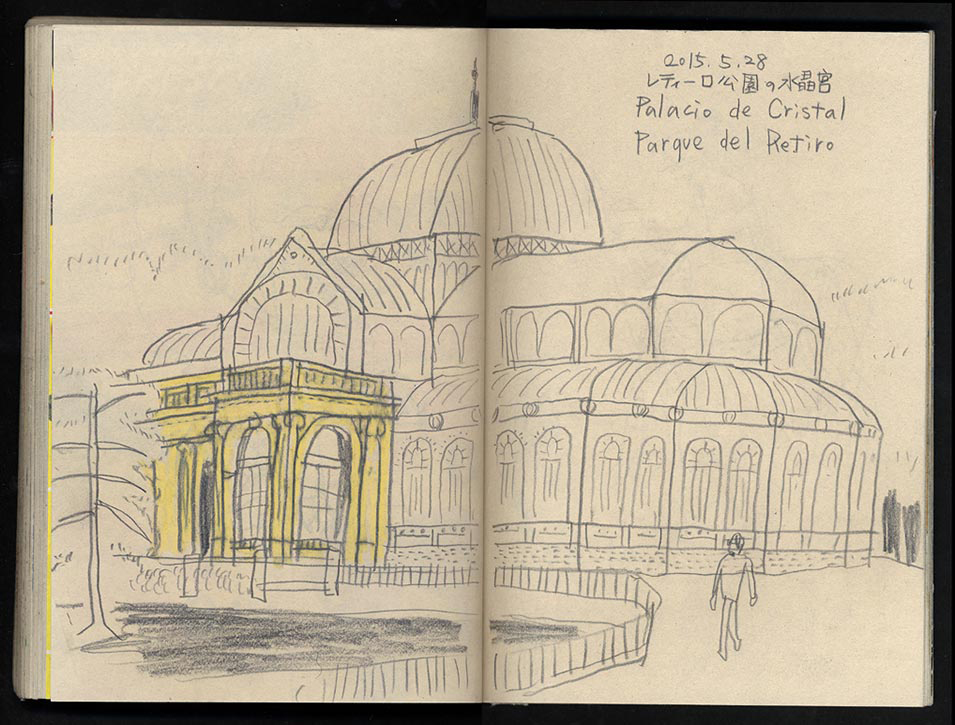 2015.5.28
レティーロ公園の水晶宮
Palacio de Cristal
Parque del Retiro